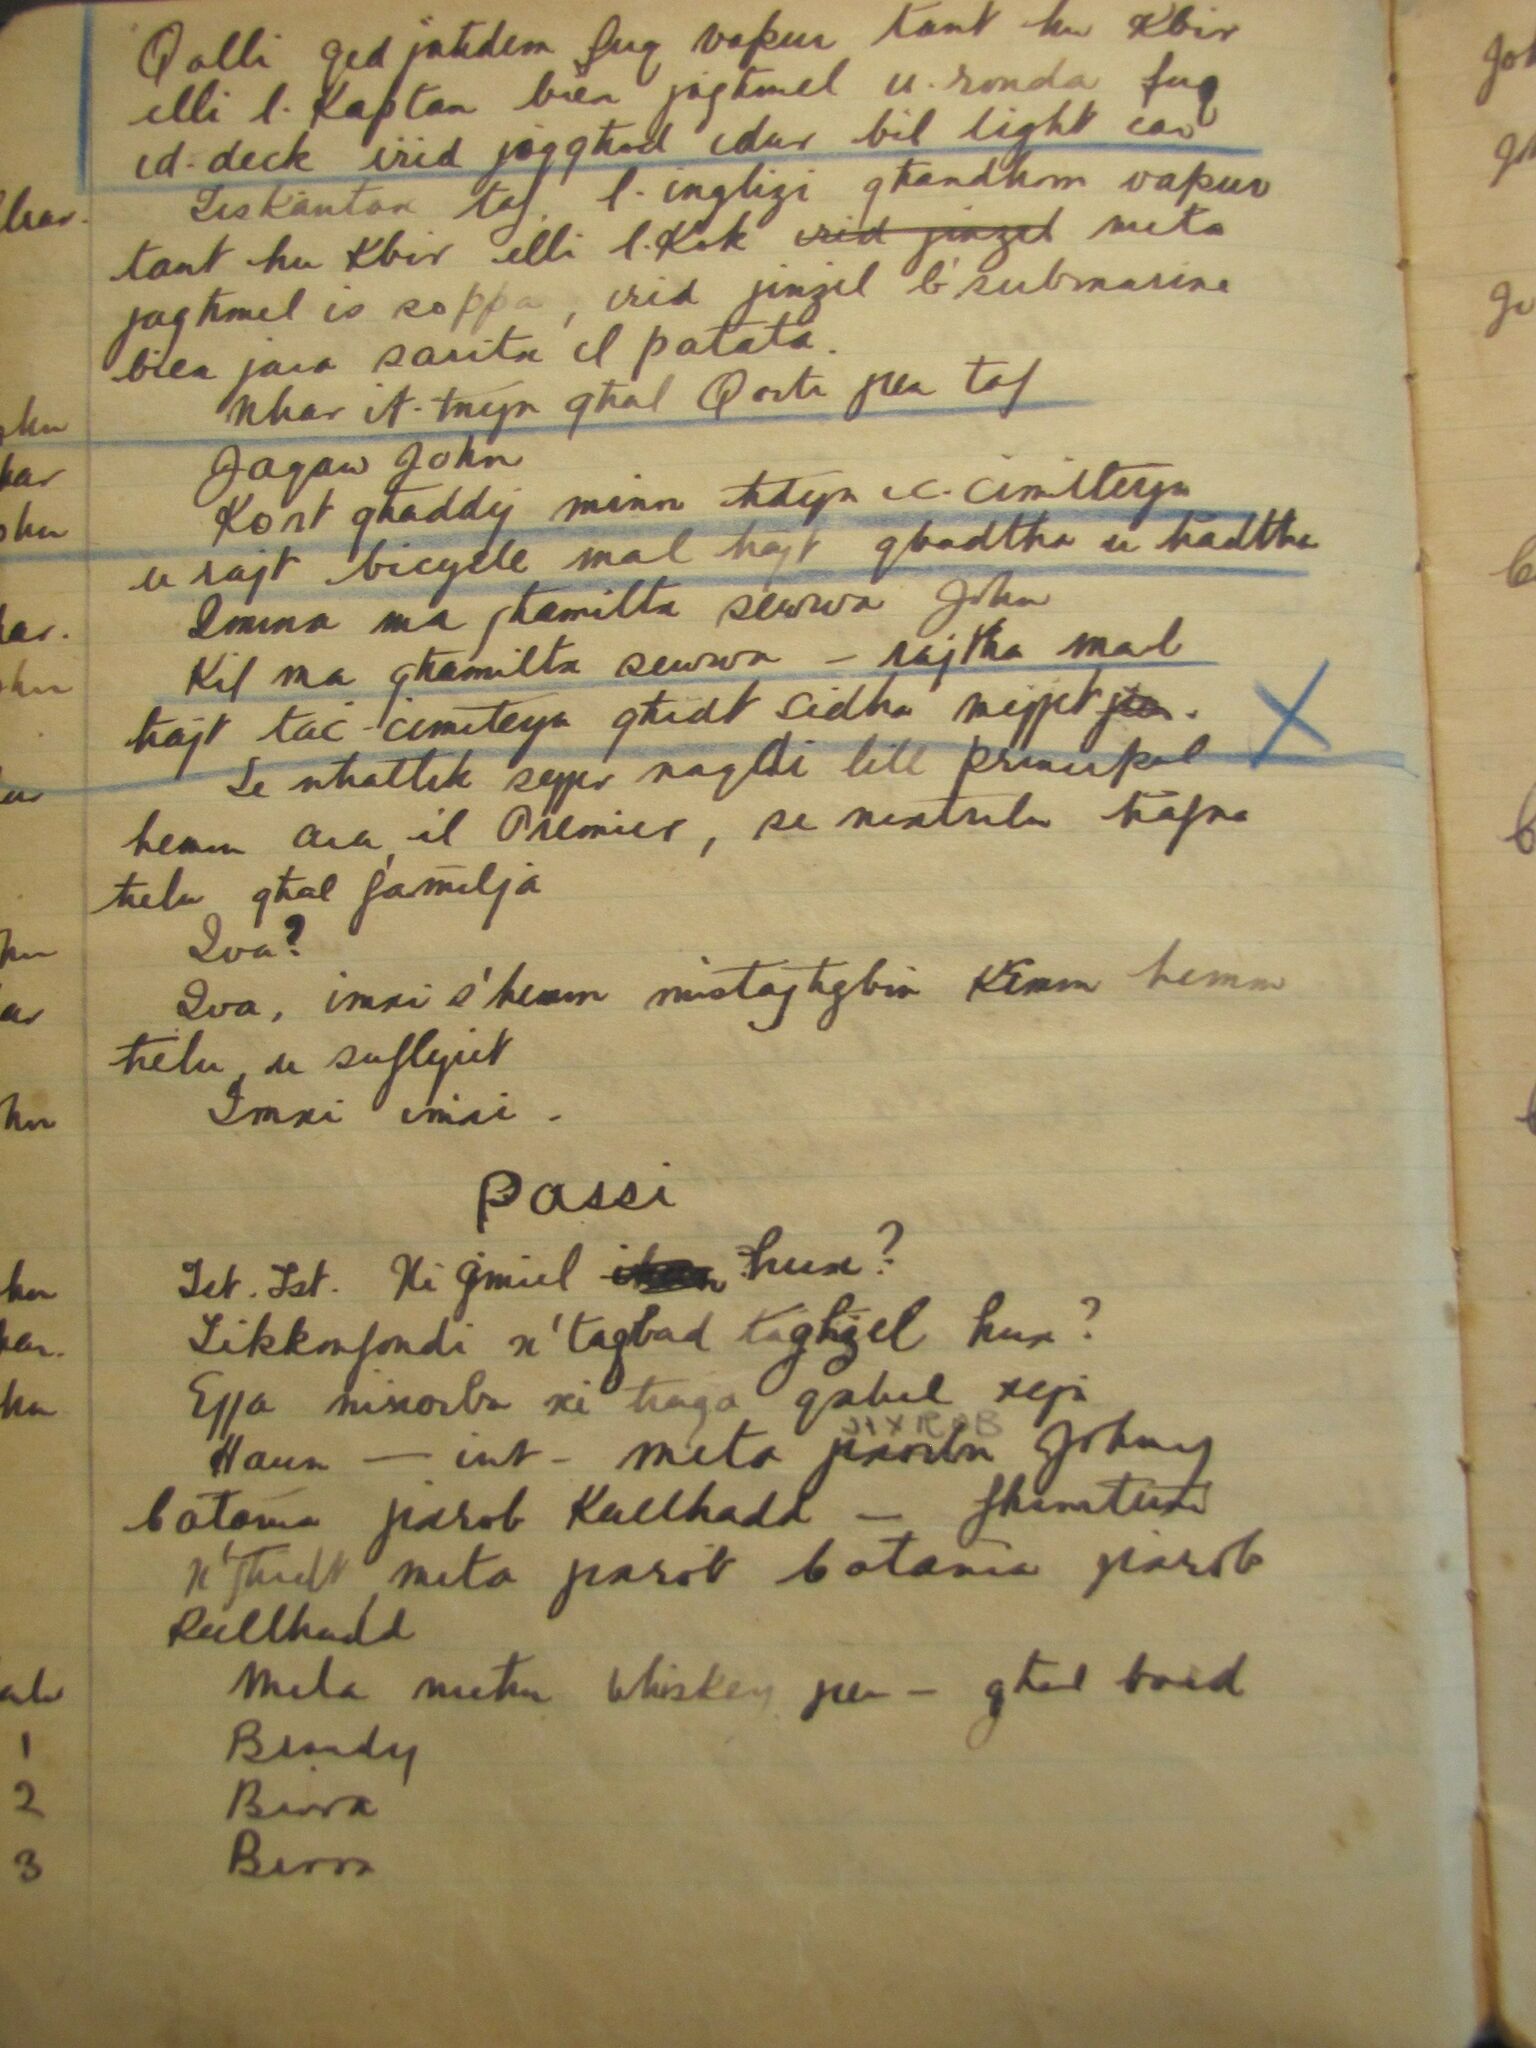 Qalli qed jahdem fuq vapur tant hu kbir
elli l. Kaptan biex jaghmel u. ronda fuq
id-deck irid joqghod idur bil light car
Iskantax taf. l-inglizi ghandhom vapur
tant hu kbir elli l. Kok irid jinzel meta
jaghmel is soppa, irid jinzel b'submarine
biex jara saritx il patata.
Nhar it-tnejn ghal Qorti pea taf
Jaqaw John
Kont ghaddej minn hdejn ic-cimiterju
u rajt bicycle mal hajt qbadtha u hadtha
Imma ma ghamiltx sewwa John
Kif ma ghamiltx sewwa - rajtha mal
hajt tac-cimiterju ghidt sidha mejjet pea.
Se nhallik sejjer naqdi lill principal
hemm ara, il Premier, se nixtrilu hafna
helu ghal familja
Iva?
Iva, imxi s'hemm mistaghgbin kemm hemm
helu, u suflejiet
Imxi imxi -
Passi
Ist. Ist. Xi gmiel hux?
Likkonfondi x'taqbad taghzel hux?
Ejja nixorbu xi haga qabel xejn
Haun - int - meta jixorbu Johnny
JIXROB
botama jixrob kullhadd - fhimtux
x'ghidt meta jixrob botama jixrob
kullhadd
Mela mitu Whiskey pea - ghal boud
1 Brandy
2 Birra
3 Birra